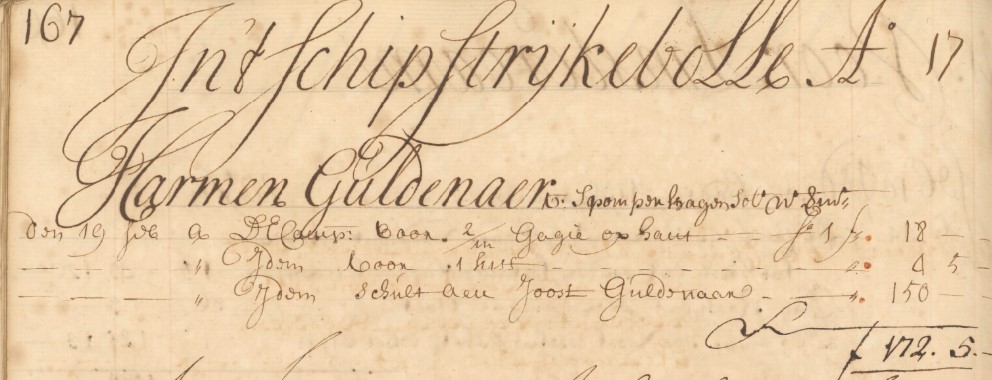 167
In't Schip Strijkebolle A° 17
Harmen Guldenaer V: Spompenhagen Sol:
Den 19 feb a DE Comp: voor 2/m Gagie op hant f 18
" Idem voor 1 kist " 4 5
" Idem schult aen Joost Guldenaar " 150
f 172. 5.